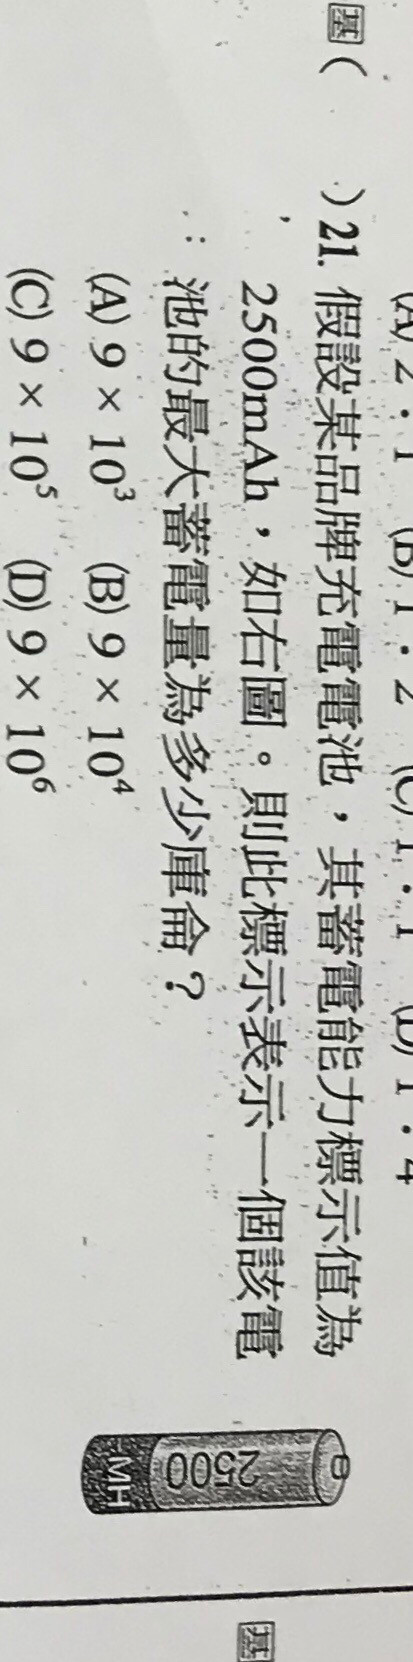 (A) 2：1 (B) 1：2 (C) 1：1 (D) 1：4
基( )21. 假設某品牌充電電池，其蓄電能力標示值為
2500mAh，如右圖。則此標示表示一個該電
池的最大蓄電量為多少庫侖？
(A) 9 × 10³ (B) 9 × 10⁴
(C) 9 × 10⁵ (D) 9 × 10⁶
2500
MH
基